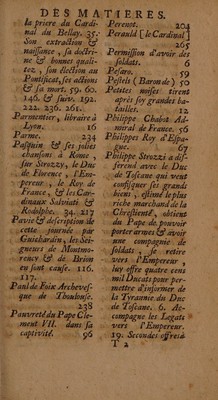 DES MATIERES.
la priere du Cardi-
nal du Bellay. 35.
Son extraction &
naissance, sa doctri-
ne & bonnes quali-
tez, son élection au
Pontificat, ses actions
& sa mort. 59. 60.
146. & suiv. 192.
222. 236. 261.
Parmentier, libraire à
Lyon. 16
Parme. 234
Pasquin & ses jolies
chansons à Rome,
sur Strozzy, le Duc
de Florence, l'Em-
pereur, le Roy de
France, & les Car-
dinaux Salviati &
Rodolphe. 34. 217
Pavie & description de
cette journée par
Guichardin, les Sei-
gneurs de Montmo-
rency & de Brion
en sont cause. 116.
117.
Paul de Foix Archeves-
que de Thoulouse.
238
Pauvreté du Pape Cle-
ment VII. dans sa
captivité. 96
Percut. 204
Perauld [le Cardinal]
265
Permission d'avoir des
soldats. 6
Pesaro. 59
Pesteils (Baron de) 50
Petites mises tirent
après soy grandes ba-
tailles. 12
Philippe Chabot Ad-
miral de France. 56
Philippes Roy d'Espa-
gne. 67
Philippe Strozzi a dif-
ferend avec le Duc
de Toscane qui veut
confisquer ses grands
biens, estimé le plus
riche marchand de la
Chrestienté, obtient
du Pape de pouvoir
porter armes & avoir
une compagnie de
soldats, se retire
vers l'Empereur,
luy offre quatre cens
mil Ducats pour per-
mettre d'informer de
la Tyrannie du Duc
de Toscane. 6. Ac-
compagne les Legats
vers l'Empereur.
19. Secondes offres à
T 2